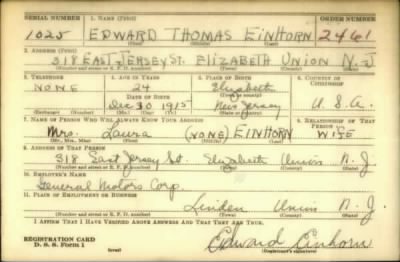 SERIAL NUMBER 1. NAME (Print) ORDER NUMBER
1025 EDWARD THOMAS EINHORN 2461
(First) (Middle) (Last)
2. ADDRESS (Print)
318 EAST JERSEY ST. ELIZABETH UNION N.J.
(Number and street or R. F. D. number) (Town) (County) (State)
3. TELEPHONE 4. AGE IN YEARS 5. PLACE OF BIRTH 6. COUNTRY OF CITIZENSHIP
NONE 24 Elizabeth
DATE OF BIRTH (Town or county)
Dec 30 1915 New Jersey U.S.A.
(Exchange) (Number) (Mo.) (Day) (Yr.) (State or country)
7. NAME OF PERSON WHO WILL ALWAYS KNOW YOUR ADDRESS 8. RELATIONSHIP OF THAT PERSON
Mrs. Laura (NONE) EINHORN WIFE
(Mr., Mrs., Miss) (First) (Middle) (Last)
9. ADDRESS OF THAT PERSON
318 East Jersey St. Elizabeth Union N.J.
(Number and street or R. F. D. number) (Town) (County) (State)
10. EMPLOYER'S NAME
General Motors Corp.
11. PLACE OF EMPLOYMENT OR BUSINESS
Linden Union N.J.
(Number and street or R. F. D. number) (Town) (County) (State)
I AFFIRM THAT I HAVE VERIFIED ABOVE ANSWERS AND THAT THEY ARE TRUE.
REGISTRATION CARD
D. S. S. Form 1 (over) Edward Einhorn
(Registrant's signature)